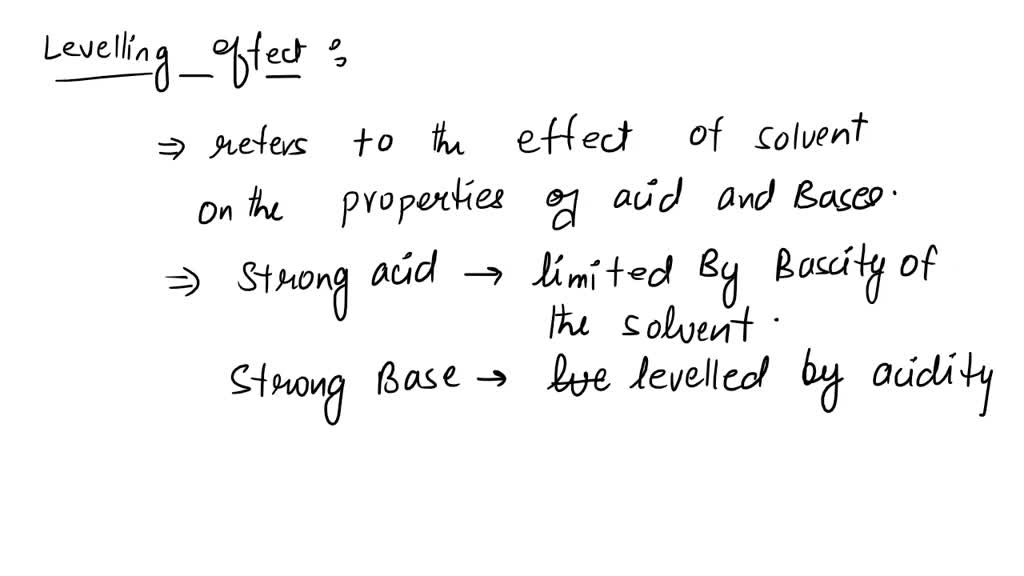 Levelling effect :
⇒ refers to the effect of solvent
on the properties of acid and Bases.
⇒ Strong acid → limited By Bascity of
the solvent.
Strong Base → levelled by acidity